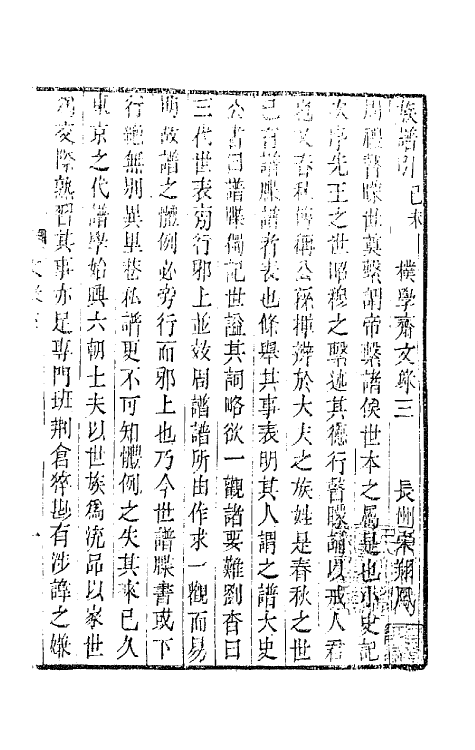 樸學齋文錄三　　長州宋翔鳳
族譜引己未
周禮瞽矇世奠繫謂帝繫諸侯世本之屬是也小史記
次序先王之世昭穆之繫述其德行瞽矇誦以戒人君
也又春秋傳稱公孫揮辨於大夫之族姓是春秋之世
已有譜牒譜者表也條舉其事表明其人謂之譜大史
公書曰譜牒獨記世謚其詞略欲一觀諸要難劉杳曰
三代世表旁行邪上並效周譜譜所由作求一觀而易
明故譜之體例必旁行而邪上也乃今世譜牒書或下
行絕無別異里巷私譜更不可知體例之失其來已久
東京之代譜學始興六朝士夫以世族為流品以家世
為交際熟習其事亦是專門班荊倉猝堪有涉諱之嫌
一